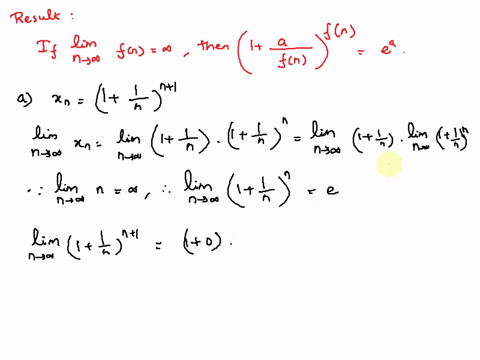 Result :
If lim n→∞ f(n) = ∞ , then (1 + a/f(n))^f(n) = e^a .
a) xn = (1 + 1/n)^n+1
lim n→∞ xn = lim n→∞ (1 + 1/n) · (1 + 1/n)^n = lim n→∞ (1 + 1/n) · lim n→∞ (1 + 1/n)^n
∵ lim n→∞ n = ∞ , ∴ lim n→∞ (1 + 1/n)^n = e
lim n→∞ (1 + 1/n)^n+1 = (1 + 0) .